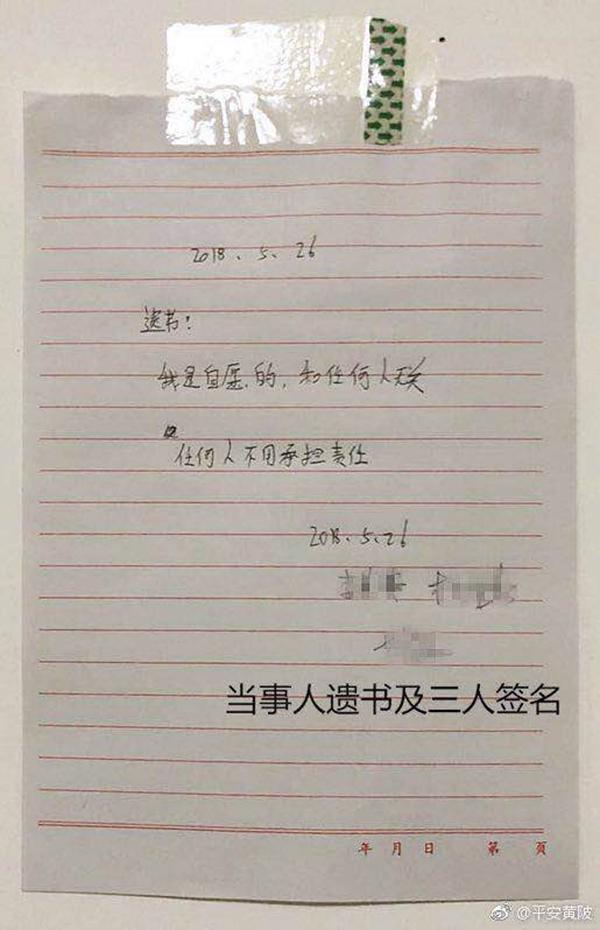 2018.5.26
遗书:
我是自愿的,和任何人无关
任何人不用承担责任
2018.5.26
当事人遗书及三人签名
年 月 日 第 页
@平安黄陂